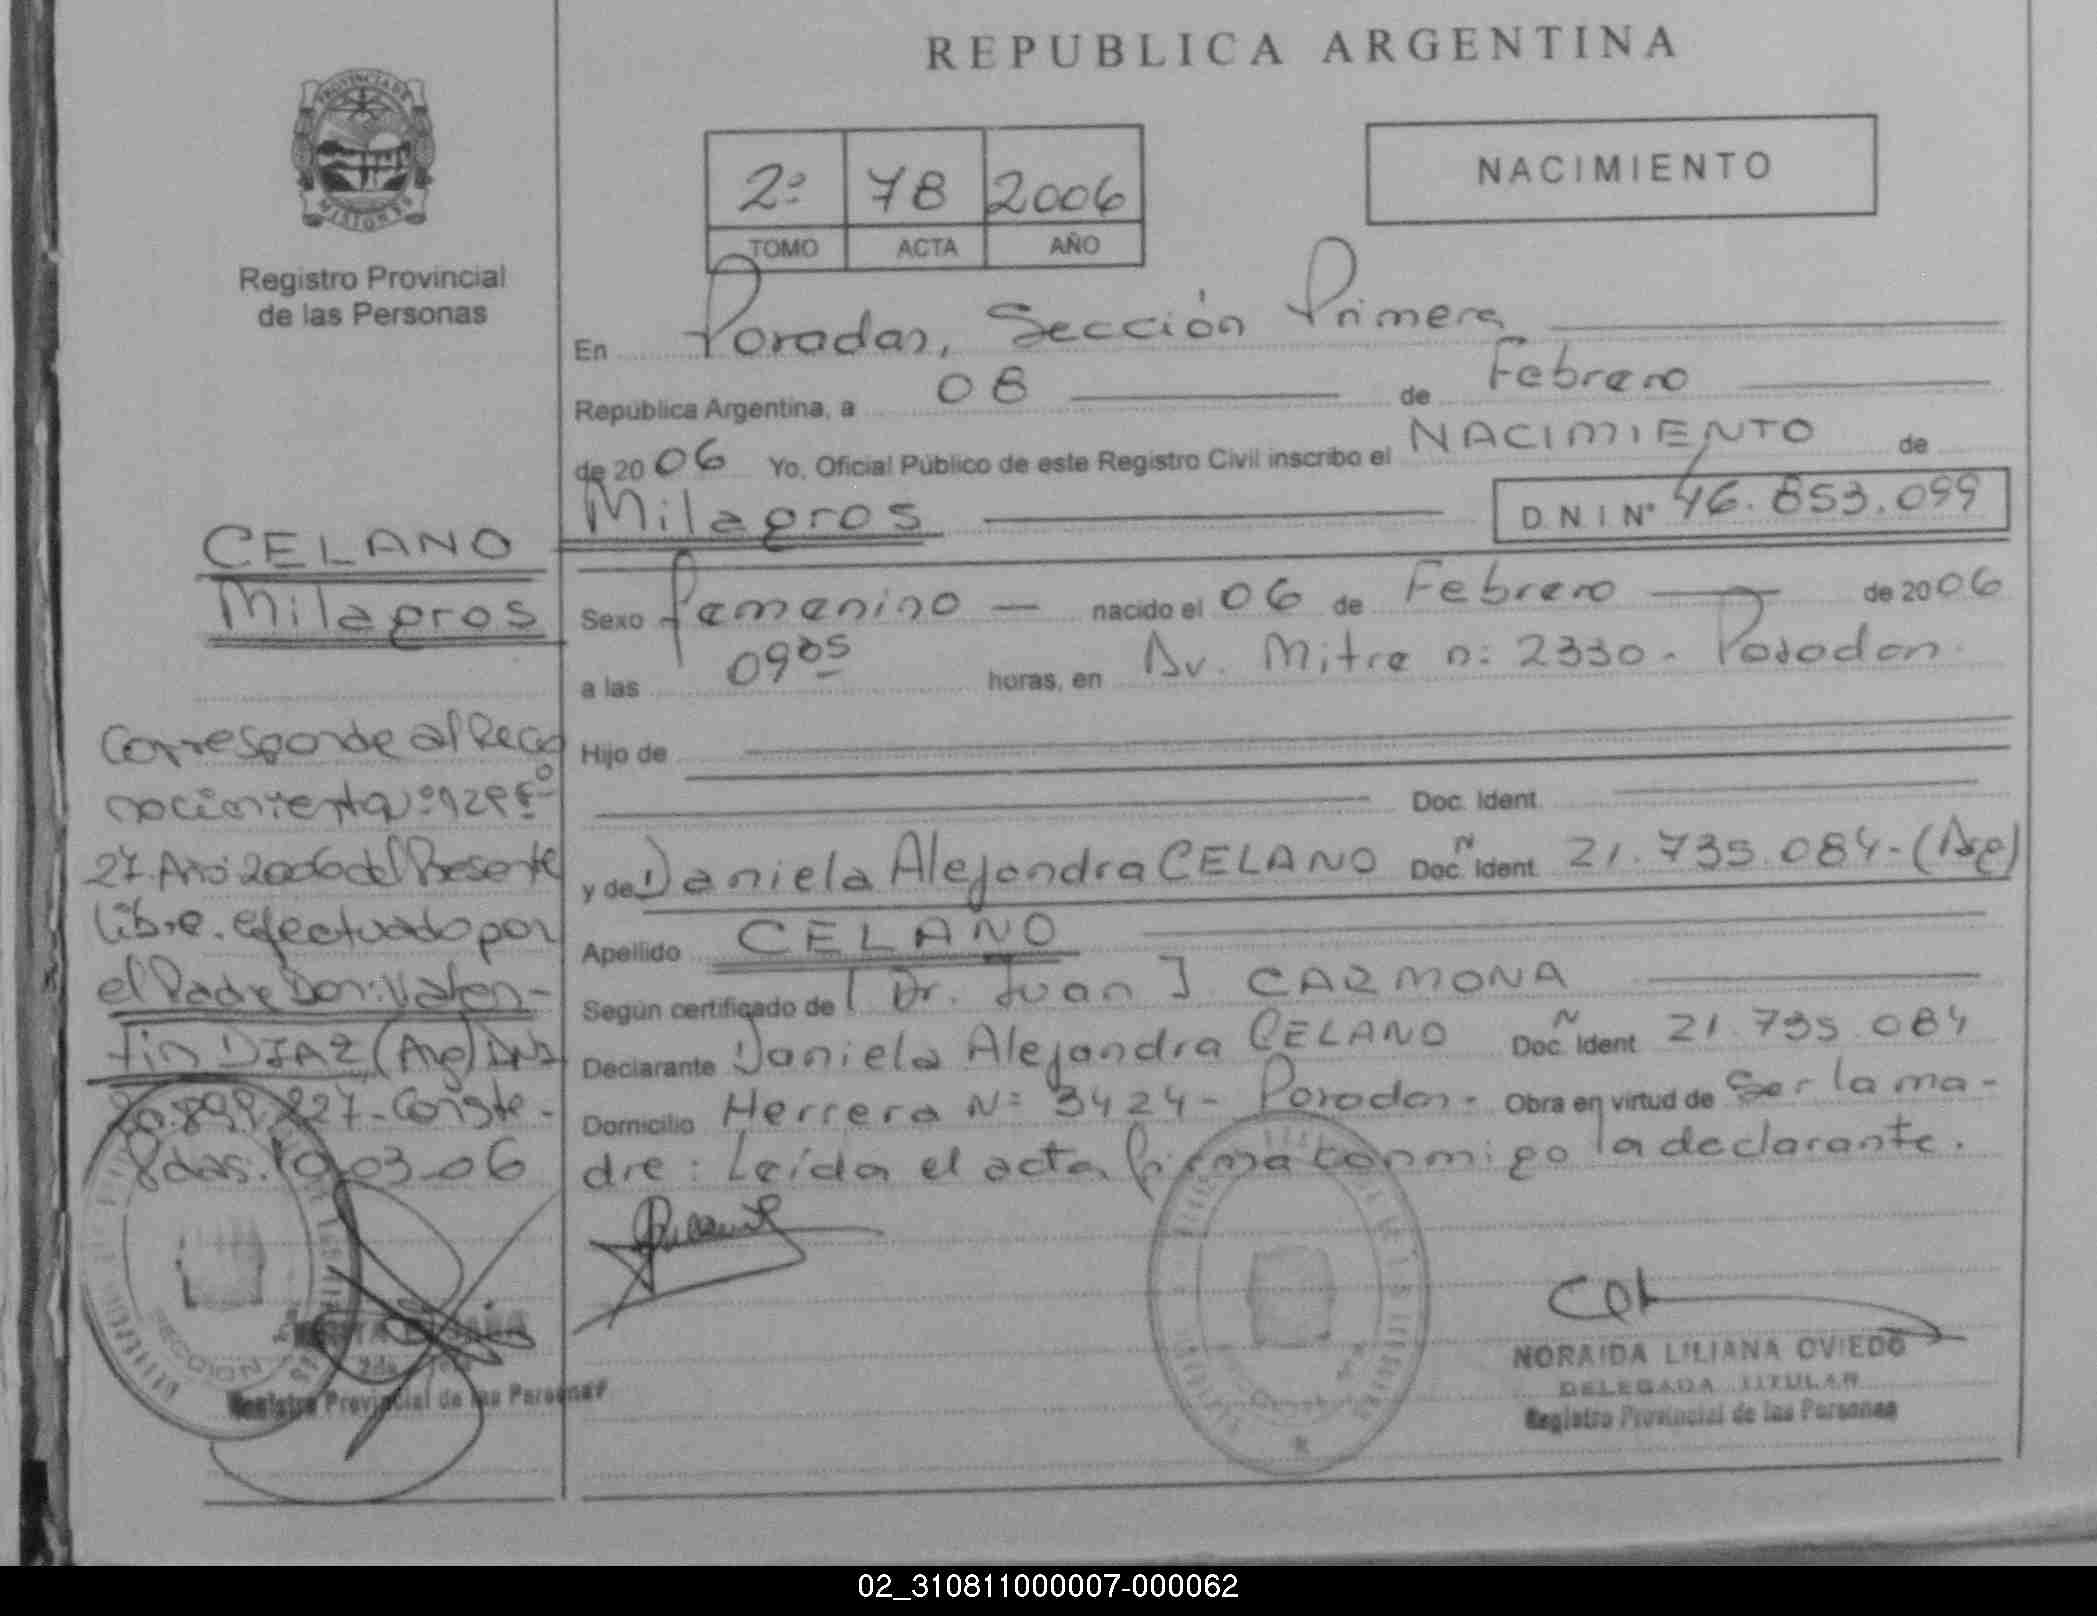 REPUBLICA ARGENTINA
PROVINCIA DE
MISIONES
Registro Provincial
de las Personas
2º 78 2006
TOMO ACTA AÑO
NACIMIENTO
En Posadas, Sección Primera
República Argentina, a 08 de Febrero
de 2006 Yo, Oficial Público de este Registro Civil inscribo el NACIMIENTO de
Milagros D N I Nº 46.853.099
Sexo femenino — nacido el 06 de Febrero de 2006
a las 09 05 horas, en Av. Mitre nº 2330 - Posadas.
Hijo de
Doc. Ident.
y de Daniela Alejandra CELANO Doc. N Ident. 21.735.084-(Arg)
Apellido CELANO
Según certificado de [Dr. Juan] CARMONA
Declarante Daniela Alejandra CELANO Doc. N Ident 21.735.084
Domicilio Herrera Nº 3424 - Posadas. Obra en virtud de Ser la ma-
dre: Leída el acta firma conmigo la declarante.
NORAIDA LILIANA OVIEDO
DELEGADA TITULAR
Registro Provincial de las Personas
CELANO
Milagros
Corresponde al Reco
nocimiento
27. Año 2006 del Presente
libro. efectuado por
el Padre Don: Valen-
tin DIAZ (Arg) DNI
827-Conste-
Pdas. 10.03-06
SECCION
Registro Provincial de las Personas
02_310811000007-000062